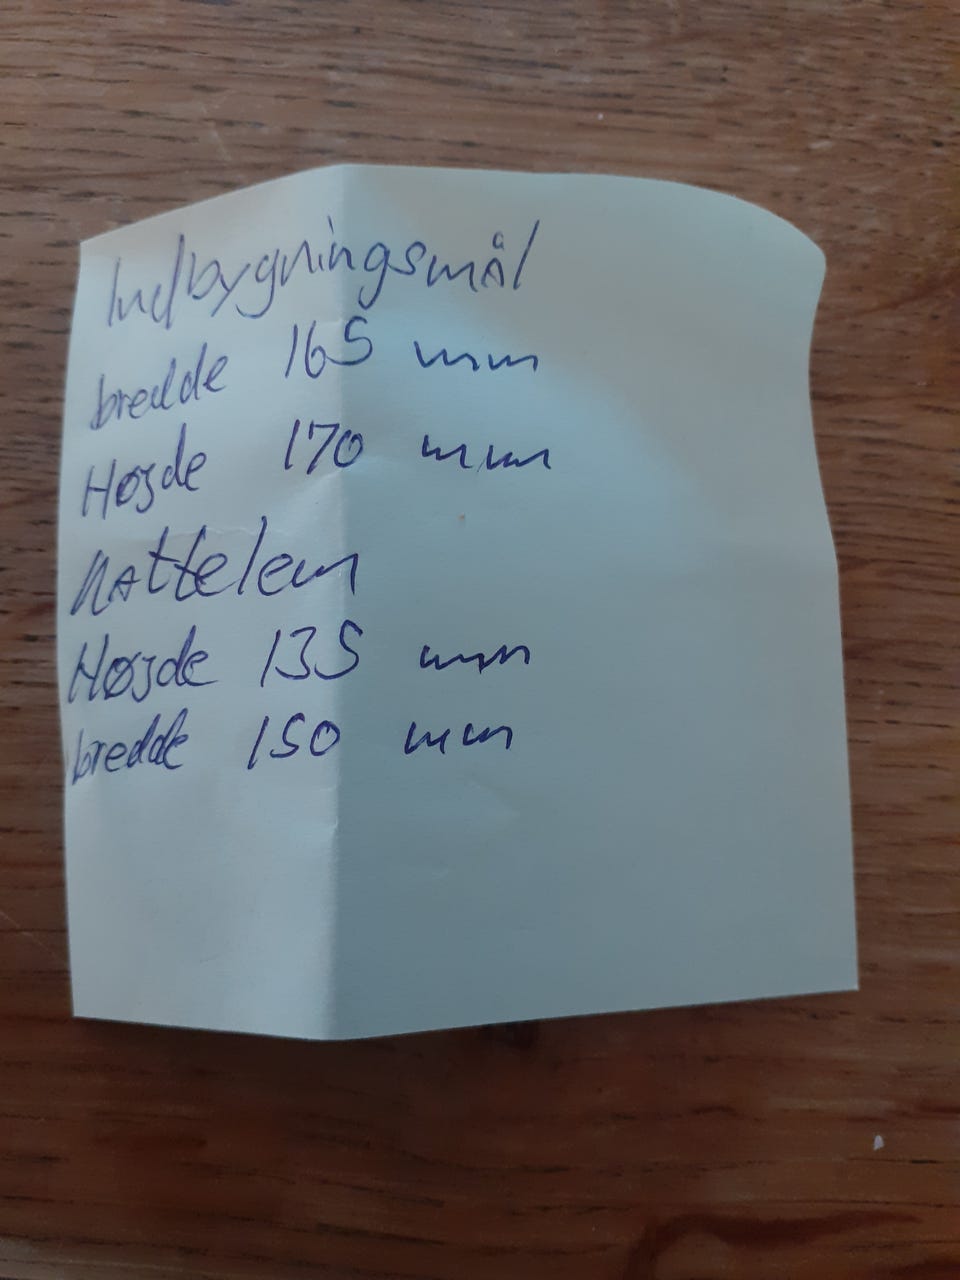 Indbygningsmål
bredde 165 mm
Højde 170 mm
Kattelem
Højde 135 mm
bredde 150 mm